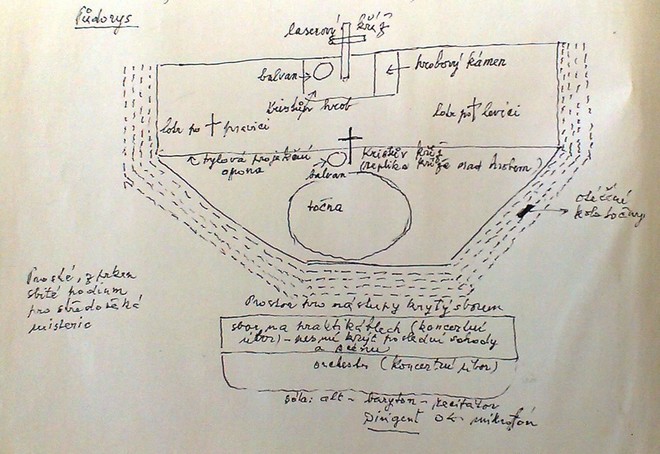 Půdorys
laserový kříž
balvan
hrobový kámen
Kristův hrob
lotr po pravici
lotr po levici
tylová projekční
opona
balvan
Kristův kříž
(replika kříže nad hrobem)
točna
otáčné
kolo bočnry
Prosté, z prken
sbité podium
pro středověká
misteria
Prostor pro nástupy krytý sborem
sbor na praktikáblech (koncertní
úbor) – nesmí krýt poslední schody
a scénu
orchester (koncertní úbor)
sóla: alt – baryton – recitátor
Dirigent mikrofon